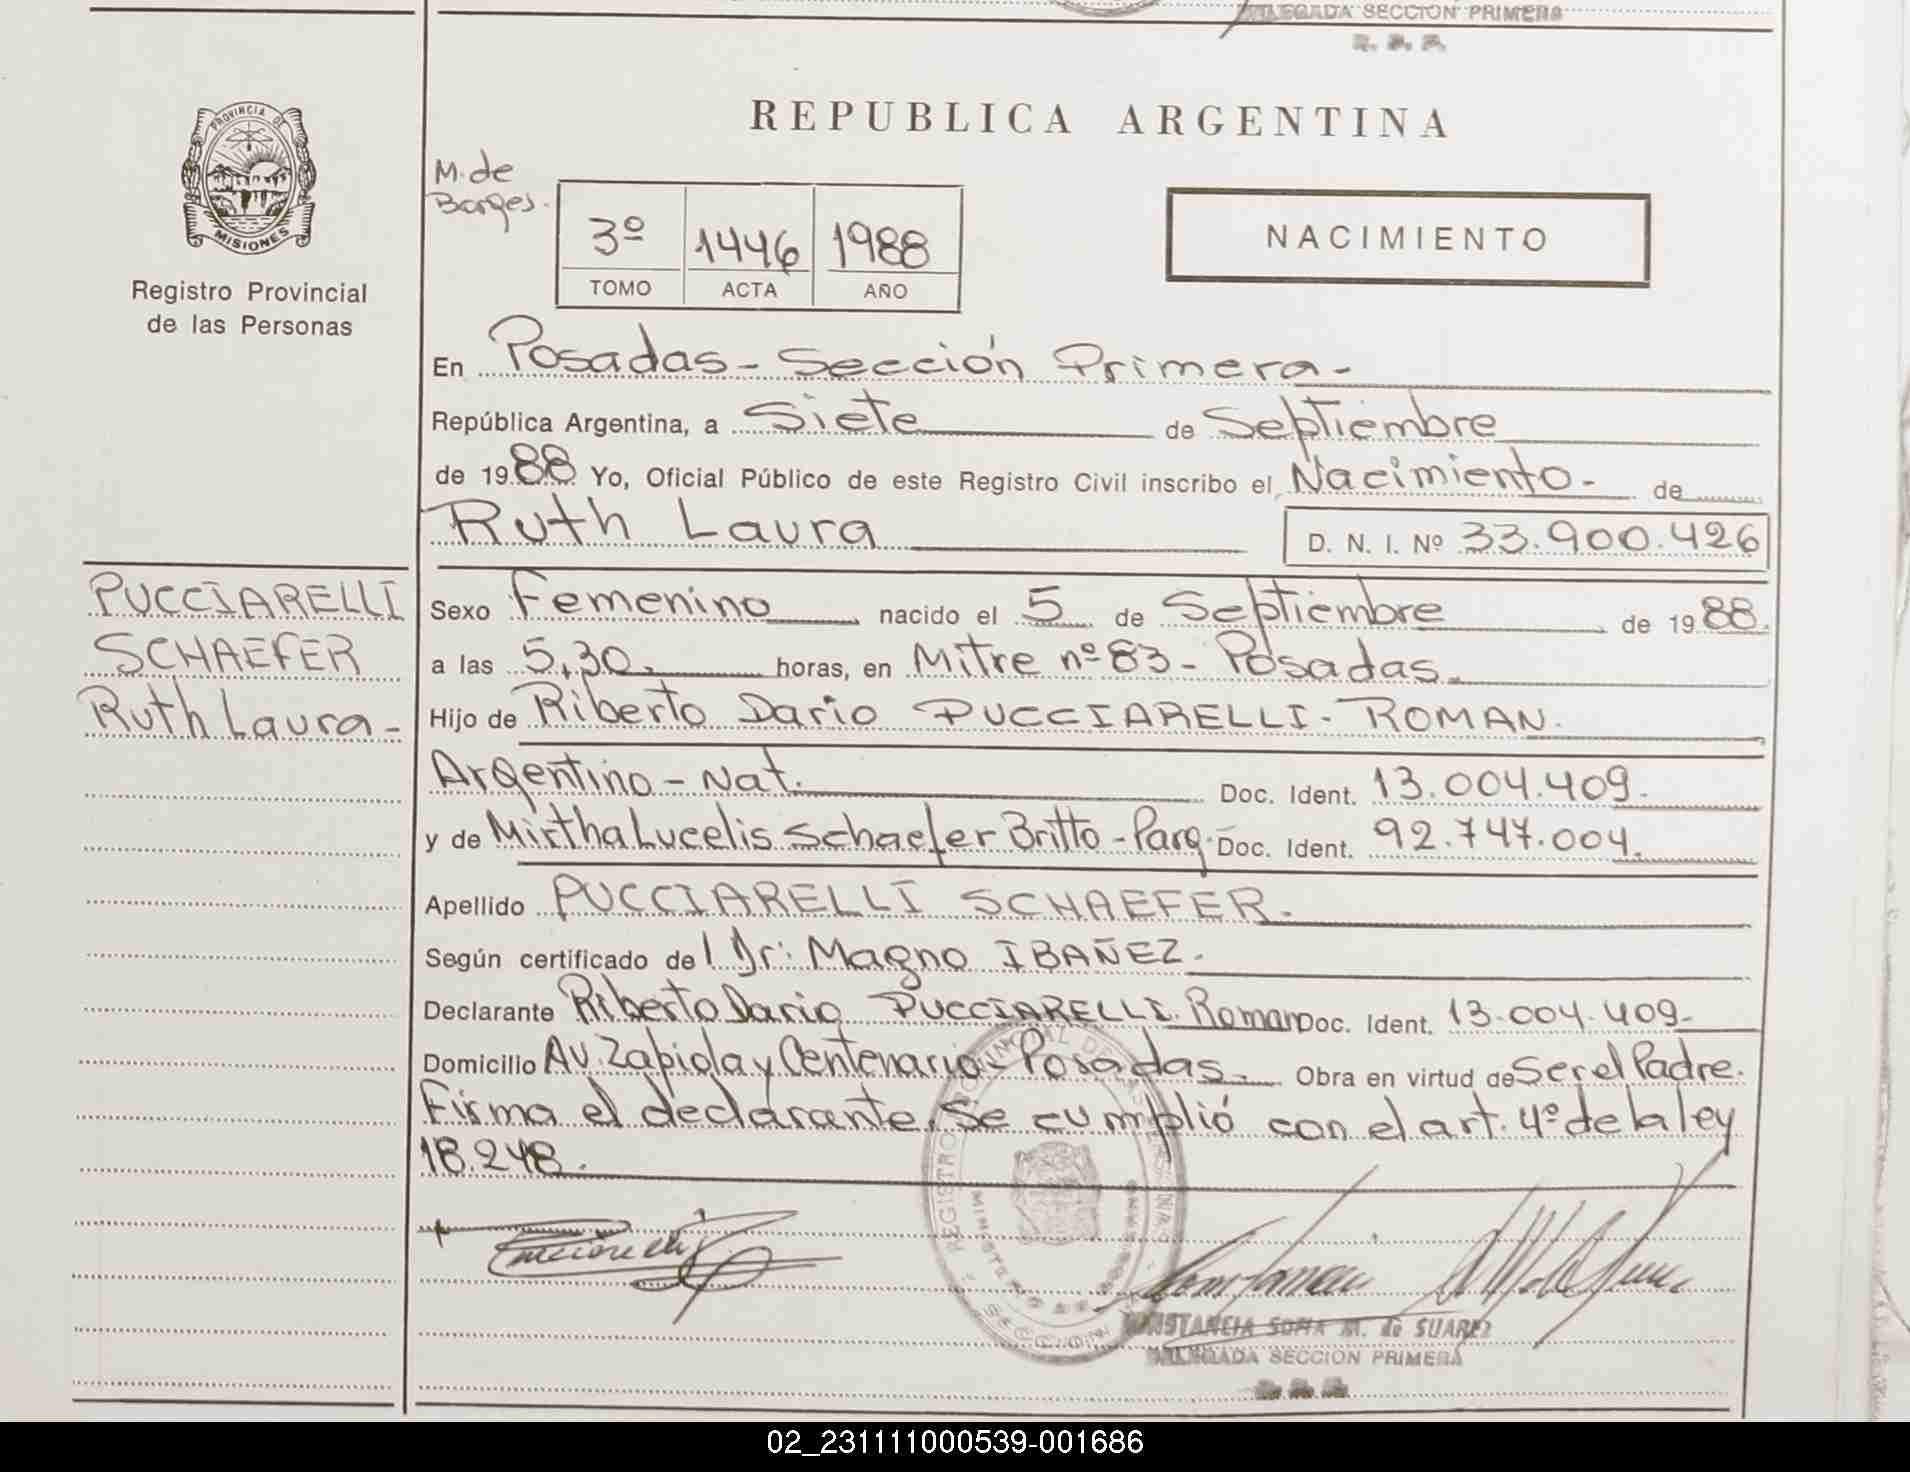 DELEGADA SECCION PRIMERA
R. P. P.
PROVINCIA DE
MISIONES
Registro Provincial
de las Personas
REPUBLICA ARGENTINA
M. de
Borges.
3º 1446 1988
TOMO ACTA AÑO
NACIMIENTO
En Posadas - Sección Primera -
República Argentina, a Siete de Septiembre
de 1988 Yo, Oficial Público de este Registro Civil inscribo el Nacimiento - de
Ruth Laura D. N. I. Nº 33.900.426
PUCCIARELLI
SCHAEFER
Ruth Laura -
Sexo Femenino nacido el 5 de Septiembre de 1988.
a las 5,30. horas, en Mitre nº 83 - Posadas.
Hijo de Riberto Dario PUCCIARELLI - ROMAN.
Argentino - Nat. Doc. Ident. 13.004.409.
y de Mirtha Lucelis Schaefer Britto - Parg. Doc. Ident. 92.747.004.
Apellido PUCCIARELLI SCHAEFER.
Según certificado del Dr: Magno IBAÑEZ.
Declarante Riberto Dario PUCCIARELLI. Roman Doc. Ident. 13.004.409-
Domicilio Av. Zapiola y Centenario - Posadas. Obra en virtud de Ser el Padre.
Firma el declarante. Se cumplió con el art. 4º de la ley
18.248.
REGISTRO PROVINCIAL DE
SECCION
CONSTANCIA SOFIA M. de SUAREZ
DELEGADA SECCION PRIMERA
02_231111000539-001686